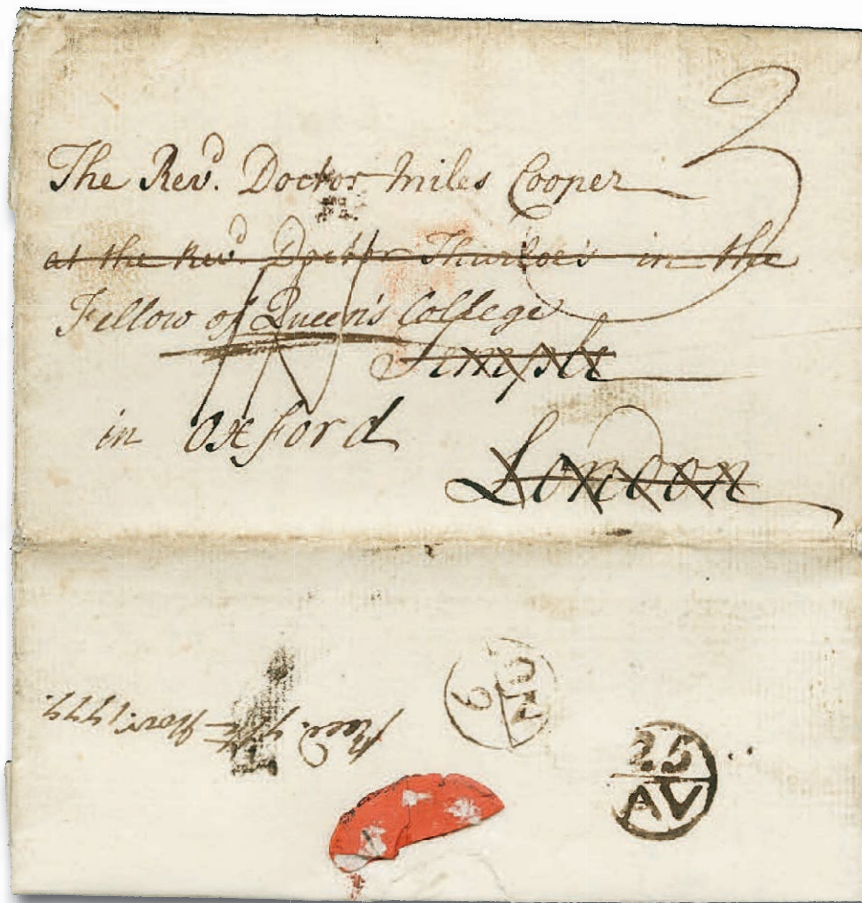 The Revd. Doctor Miles Cooper
at the Revd. Doctor Thurloe's in the
Fellow of Queen's College
Temple
in Oxford
London
3
NO
6
Recd. 7th Novr. 1777.
25
AV